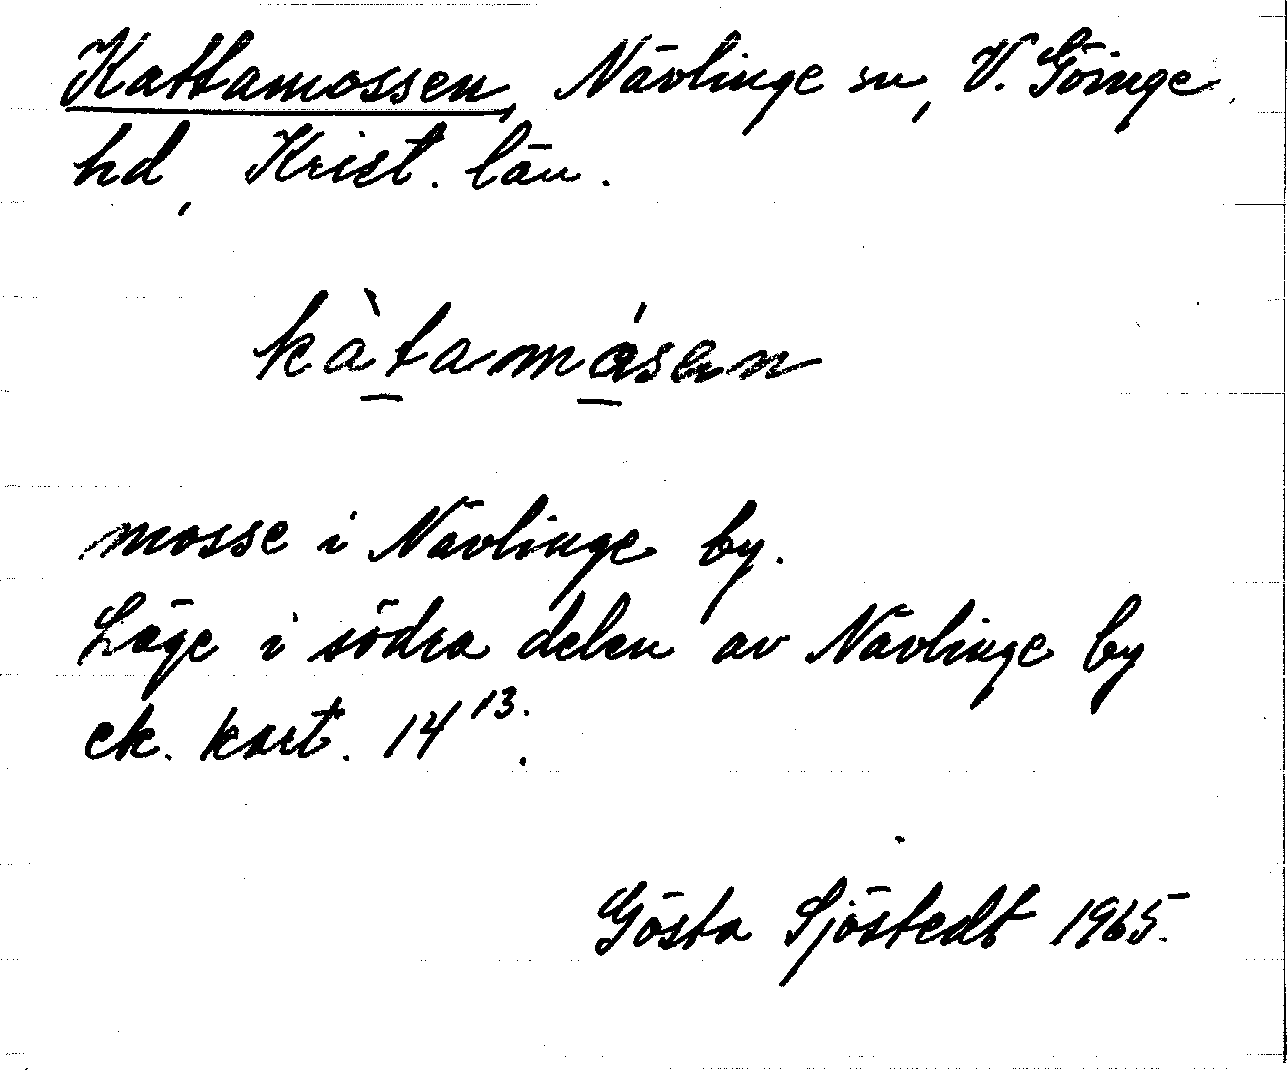 Kattamossen, Nävlinge sn, V. Göinge
hd, Krist. län.
kàtamåsen
mosse i Nävlinge by.
Läge i södra delen av Nävlinge by
ek. kart. 14 13.
Gösta Sjöstedt 1965.